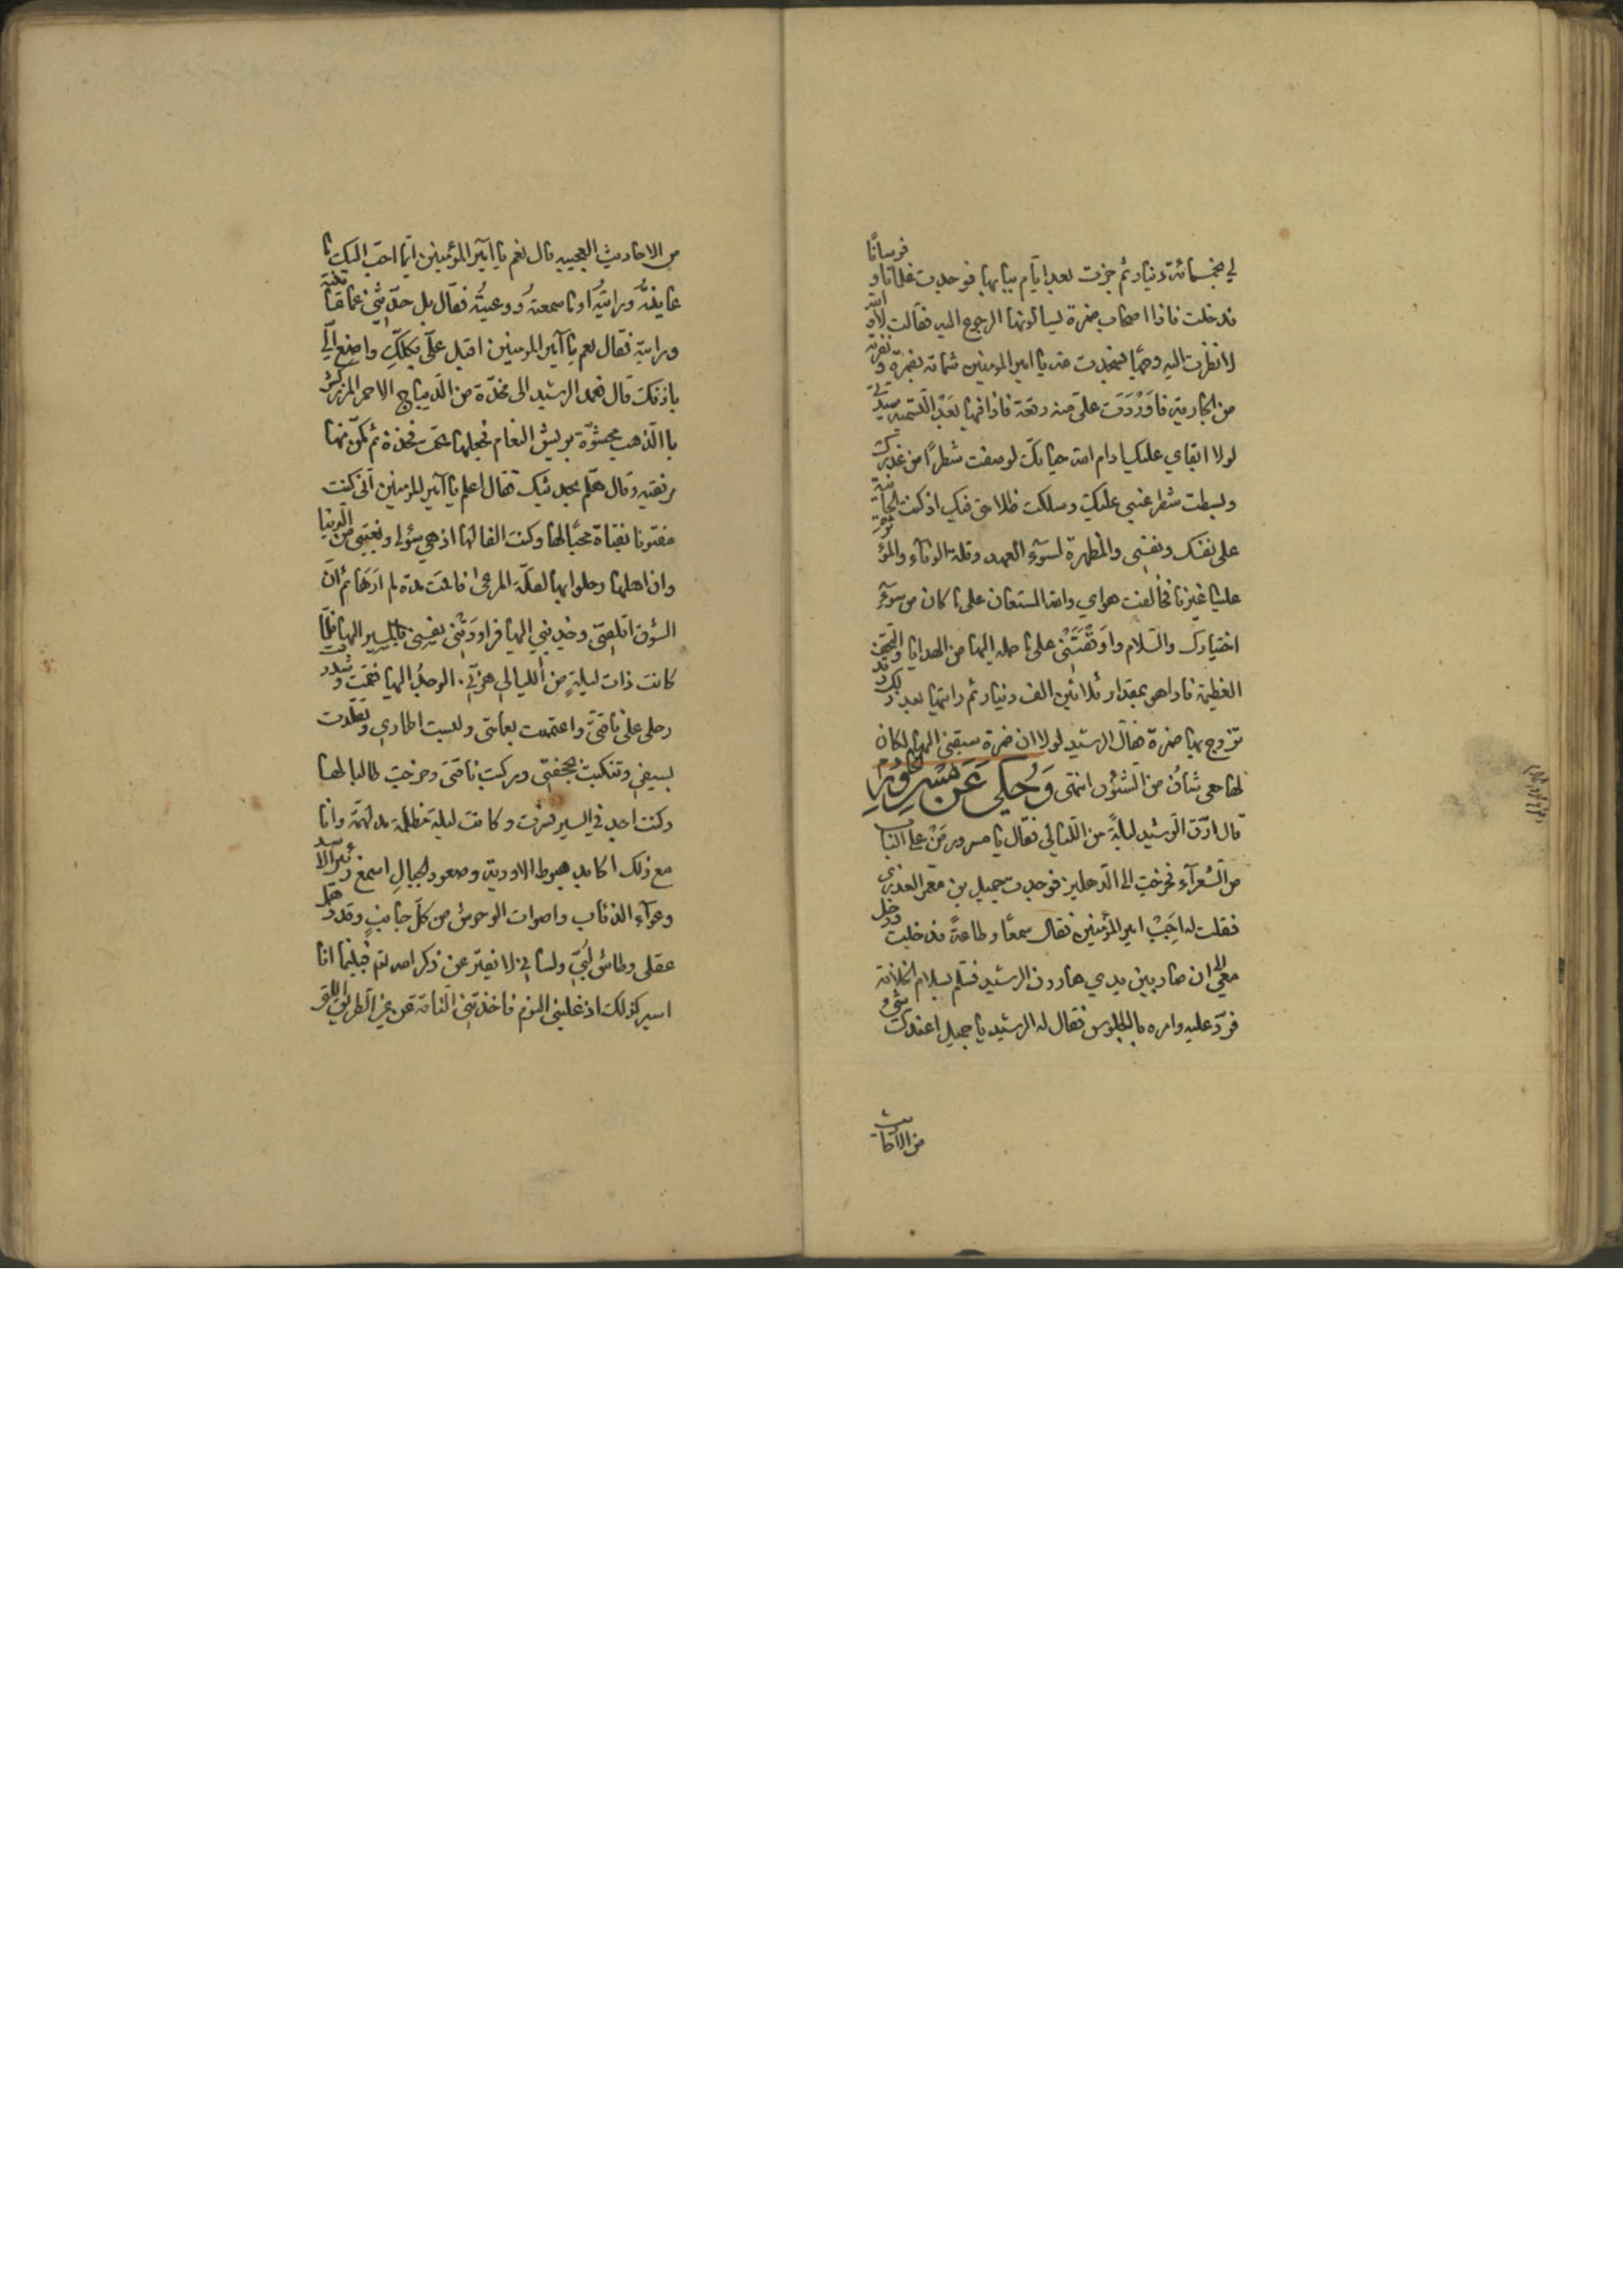 لي بخمسمائة دينار ثم جزت بعد ايام ببابها فوجدت غلمانا و فرسانًا
فدخلت فاذا اصحاب ضمرة يسالونها الرجوع اليه فقالت لا والله
لا نظرت اليه وجها فسجدت لله يا امير المومنين شماتة بضمرة و تقربة
من الجارية فاوردت علي منه رقعة فاذا فيها بعد التسمية سيدتي
لولا ابقاي عليك ادام الله حياتك لوصفت شطرًا من غدرك
وبسطت شطر عتبي عليك وسلكت ظلامتي فيك اذ كنت الجانية
على نفسك ونفسي والمظهرة لسوء العهد وقلة الوفاء والمؤثرة
علينا غيرنا فخالفت هواي والله المستعان على ما كان من سوء
اختيارك والسلام واوقفتني على ما حمله اليها من الهدايا والتحف
العظيمة فاذا هو بمقدار ثلاثين الف دينار ثم رايتها بعد ذلك وقد
تزوج بها ضمرة فقال الرشيد لولا ان ضمرة سبقني اليها لكان
لها معي شان من الشؤن انتهى وَحُكي عَن مَسرورِ الخادم
قال ارق الرشيد ليلة من الليالي فقال يا مسرور من على الباب
من الشعرآء فخرجت الى الدهليز فوجدت جميل بن معمر العذري
فقلت له اجب امير المؤمنين فقال سمعًا وطاعةً فدخلت ودخل
معي الى ان صار بين يدي هارون الرشيد فسلم بسلام الخلافة
فرد عليه وامره بالجلوس فقال له الرشيد يا جميل اعندك شي
من الاحاديث
من الاحاديث العجيبه قال نعم يا امير المؤمنين ايما احب اليك ما
عاينته ورايته او ما سمعته ووعيته فقال بل حدثني عما عاينته
ورايته فقال نعم يا امير المومنين اقبل علي بكلك واصغ الي
باذنك قال فعمد الرشيد الى مخدة من الديباج الاحمر المزركش
بالذهب محشوة بريش النعام فجعلها تحت فخذة ثم مكن منها
مرفقيه وقال هلم بحديثك فقال اعلم يا امير المومنين اني كنت
مفتونا بفتاة محبًا لها وكنت الفالها اذ هي سؤلي وبغيتي من الدنيا
وان اهلها رحلوا بها لقلة المرعى فاقمت مدة لم ارها ثم ان
الشوق اقلقني وجذبني اليها فراودتني نفسي بالمسير اليها فلما
كانت ذات ليلة من الليالي هزني الوجد اليها فقمت وشددت
رحلي على ناقتي واعتممت بعمامتي ولبست اطماري وتقلدت
بسيفي وتنكبت بحجفتي وركبت ناقتي وخرجت طالبا لها
وكنت اجد في السير فسرت وكانت ليلة مظلمة مدلهمة وانا
مع ذلك اكابد هبوط الاودية وصعود الجبال اسمع زئير الاسد
وعوآء الذئاب واصوات الوحوش من كل جانب وقد ذهل
عقلي وطاش لبي ولساني لا يفتر عن ذكر الله تع فبينما انا
اسير كذلك اذ غلبني النوم فاخذتني الناقة عن غير الطريق اللتي